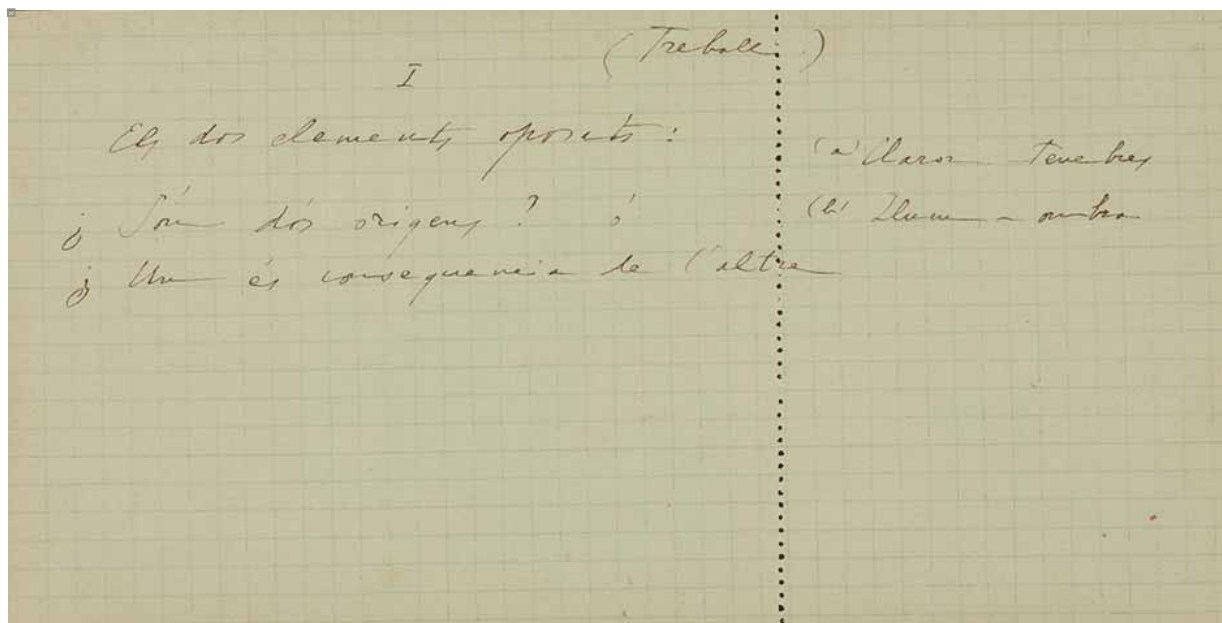 (Treball)
I
Els dos elements oposats:
¿ Són dos origens? ó
¿ Un és consequencia de l'altre
(a) Claror Tenebres
(b) Llum - ombra